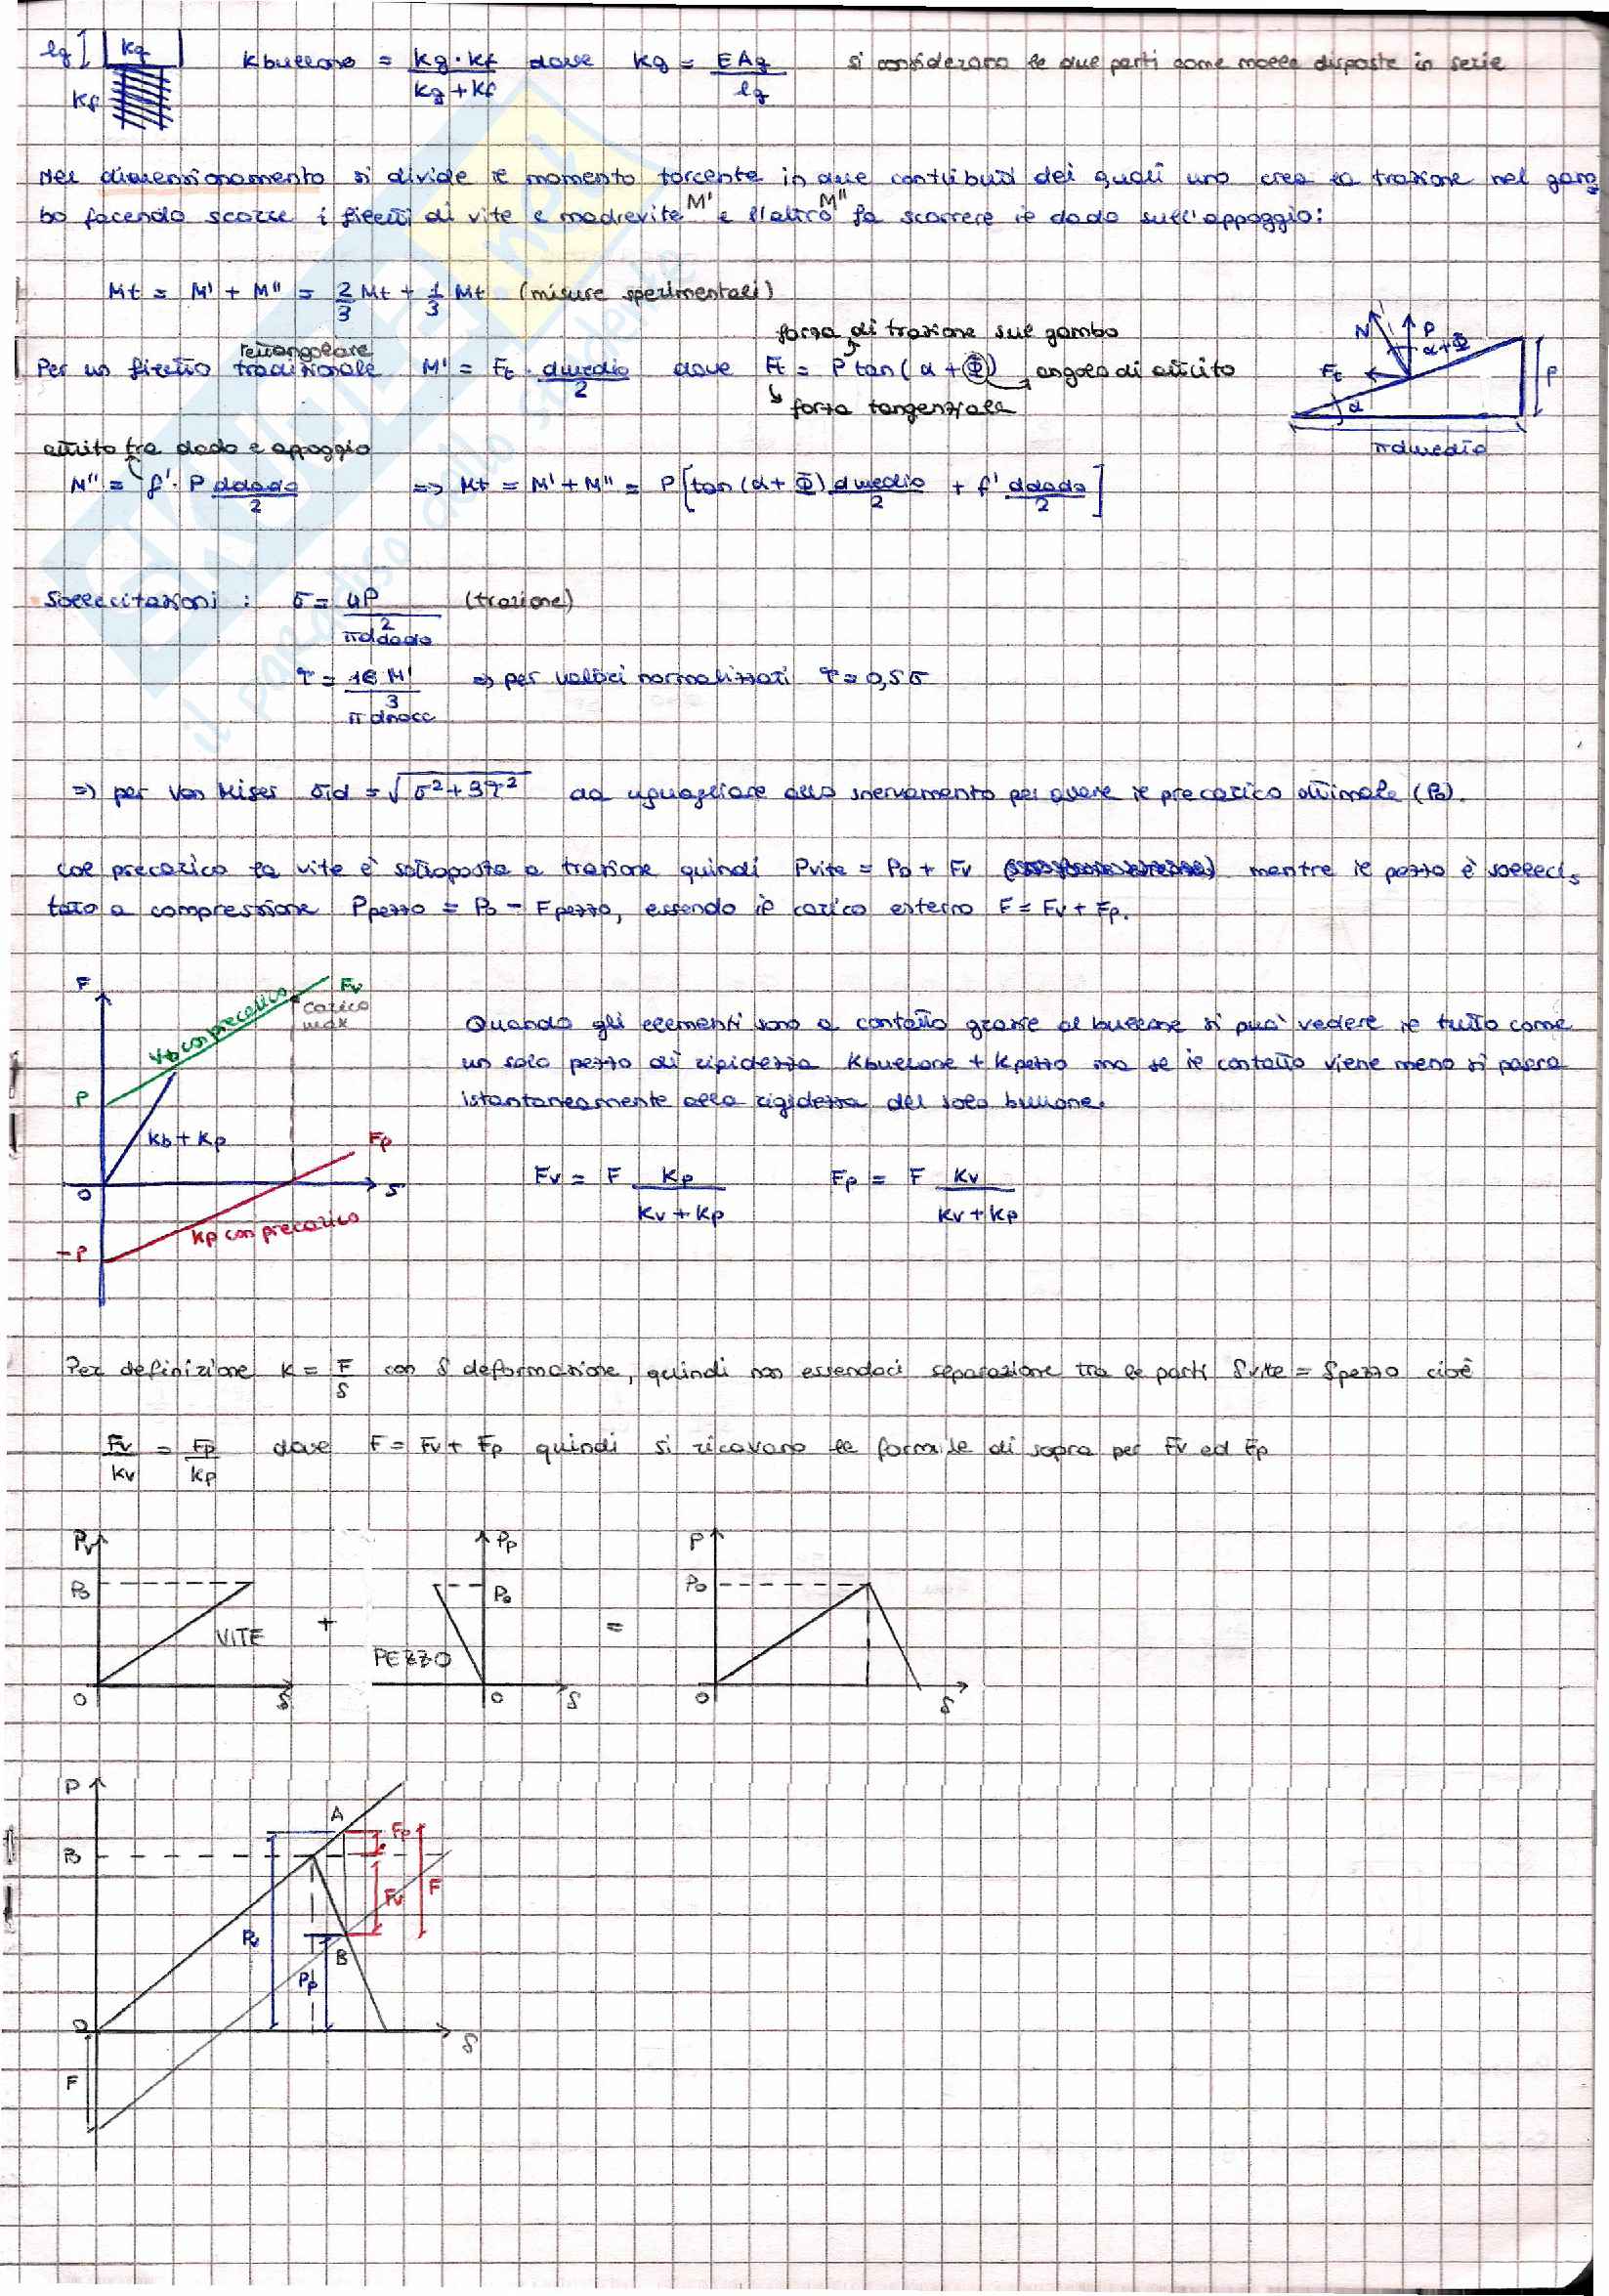 lg Kg Kbullone = Kg·Kf / Kg+Kf dove Kg = EAg / lg si considerano le due parti come molle disposte in serie
Kf
Nel dimensionamento si divide il momento torcente in due contributi dei quali uno crea la trazione nel gam
bo facendo scorrere i filetti di vite e madrevite M' e l'altro M'' fa scorrere il dado sull'appoggio:
Mt = M' + M'' = 2/3 Mt + 1/3 Mt (misure sperimentali)
forza di trazione sul gambo
rettangolare
Per un filetto tradizionale M' = Ft · dmedio/2 dove Ft = P tan(α+Φ) angolo di attrito
forza tangenziale
N P α+Φ Ft α P πdmedio
attrito tra dado e appoggio
M'' = f'·P ddado/2 => Mt = M' + M'' = P[tan(α+Φ) dmedio/2 + f' ddado/2]
Sollecitazioni : σ = 4P / πd²dado (trazione)
τ = 16 M' / πd³nocc => per valori normalizzati τ = 0,5σ
=> per Von Mises σid = √σ²+3τ² da uguagliare allo snervamento per avere il precarico ottimale (P0).
Col precarico la vite è sottoposta a trazione quindi Pvite = P0 + Fv mentre il pezzo è solleci,
tato a compressione Ppezzo = P0 - Fpezzo, essendo il carico esterno F = Fv + Fp.
F Fv
carico
max
Kb con precarico
P
Kb + Kp
Fp
0 δ
-P
Kp con precarico
Quando gli elementi sono a contatto grazie al bullone si può vedere il tutto come
un solo pezzo di rigidezza Kbullone + Kpezzo ma se il contatto viene meno si passa
istantaneamente alla rigidezza del solo bullone.
Fv = F Kp / Kv+Kp Fp = F Kv / Kv+Kp
Per definizione K = F/δ con δ deformazione, quindi non essendoci separazione tra le parti δvite = δpezzo cioè
Fv/Kv = Fp/Kp dove F = Fv + Fp quindi si ricavano le formule di sopra per Fv ed Fp
Pv P0 VITE 0 δ
+
Pp P0 PEZZO 0 δ
=
P P0 0 δ
P
A
Fp
P0
Fv F
Pv
B
Pp
0 δ
F